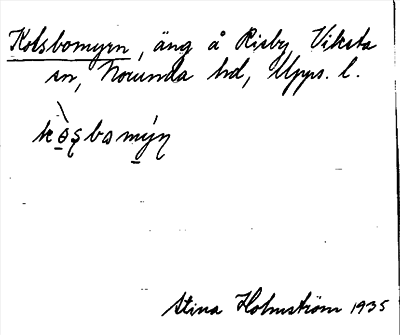 Kolsbomyrn, äng å Risby, Viksta
sn, Norunda hd, Upps. l.
kò̠ʂbomý̠ɳ
Stina Holmström 1935